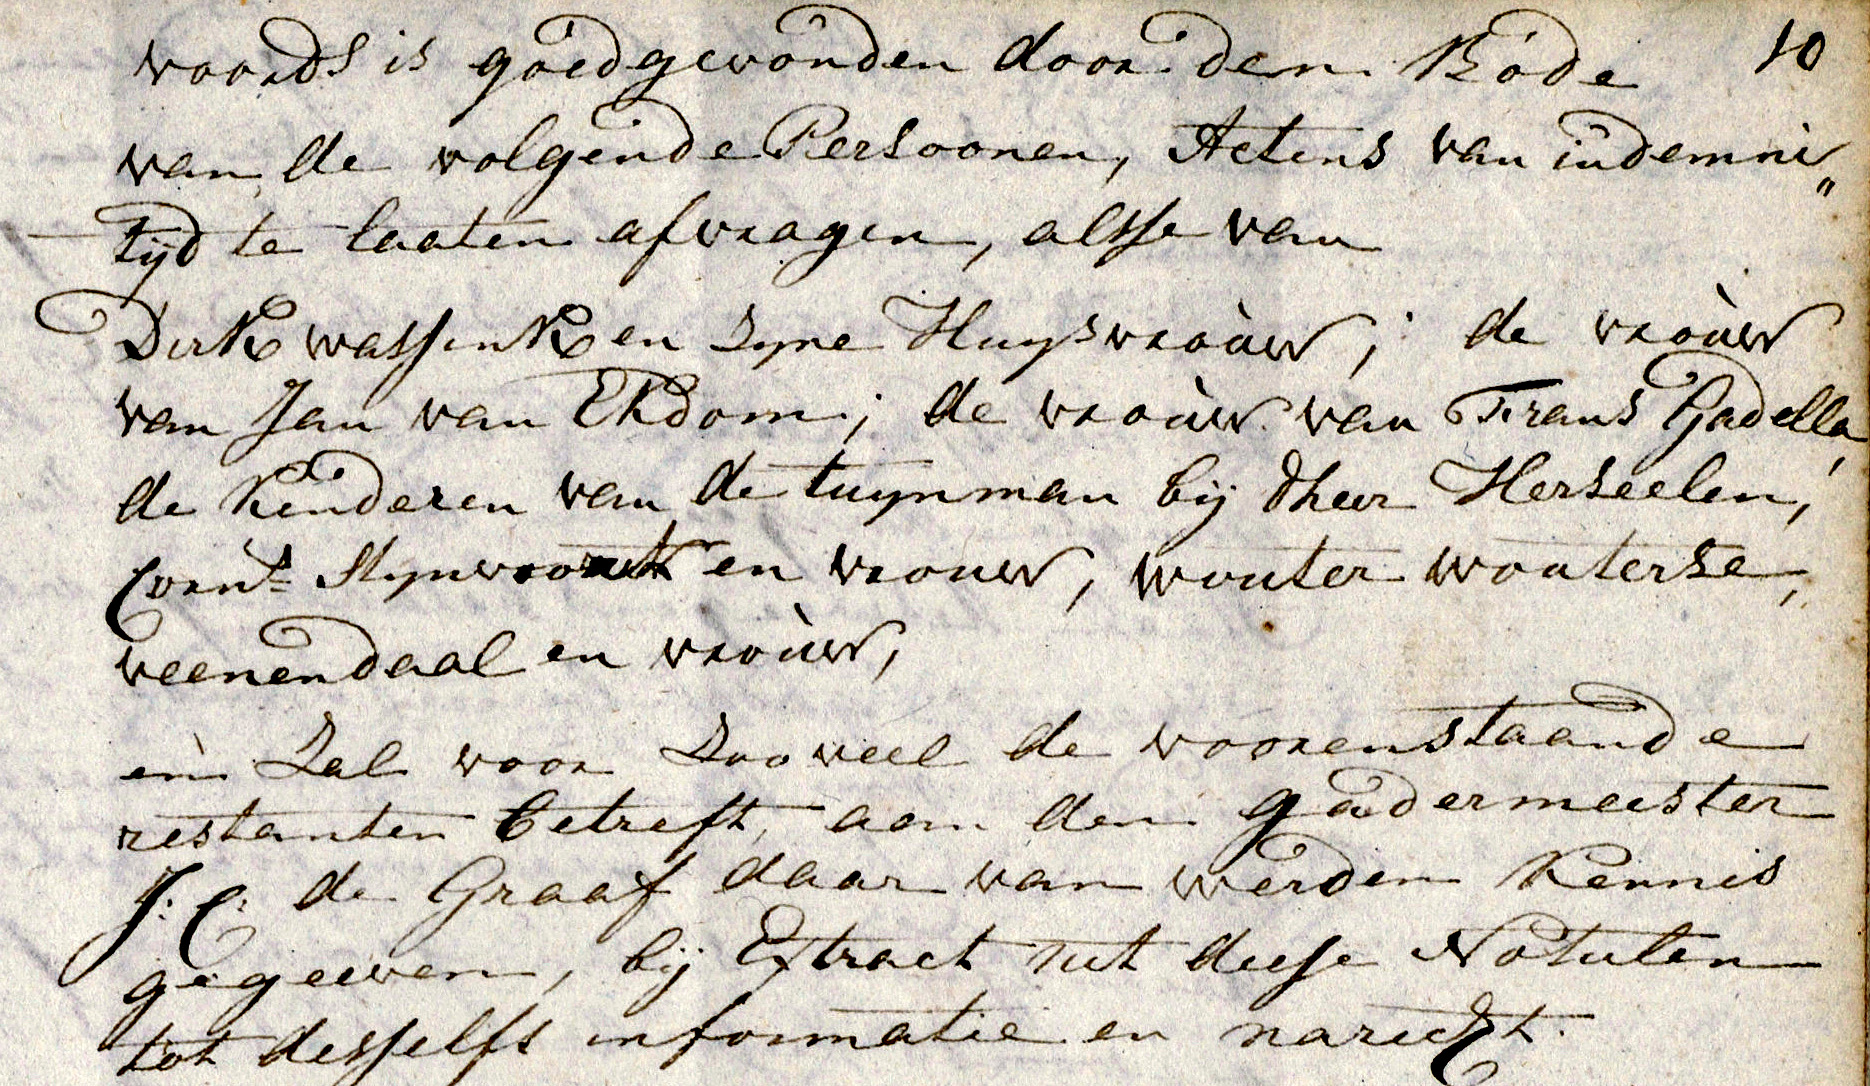 voords is goedgevonden door den Bode 10
van de volgende Persoonen, Actens van indemni„
tijd te laaten afvragen, alsse van
Dirk wassink en Zyne Huysvrouw; de vrouw
van Jan van Ekdom; de vrouw van Frans Gadella,
de kinderen van de tuynman bij dheer Herseelen,
Corns. en vrouw, wouter wouterse,
veenendaal en vrouw,
en Zal voor Zoo veel de voorenstaande
restanten betreft, aan den gadermeester
J: C: de Graaf daar van werden kennis
gegeeven, bij Extract uit deese Notulen
tot desselfs informatie en narecht.